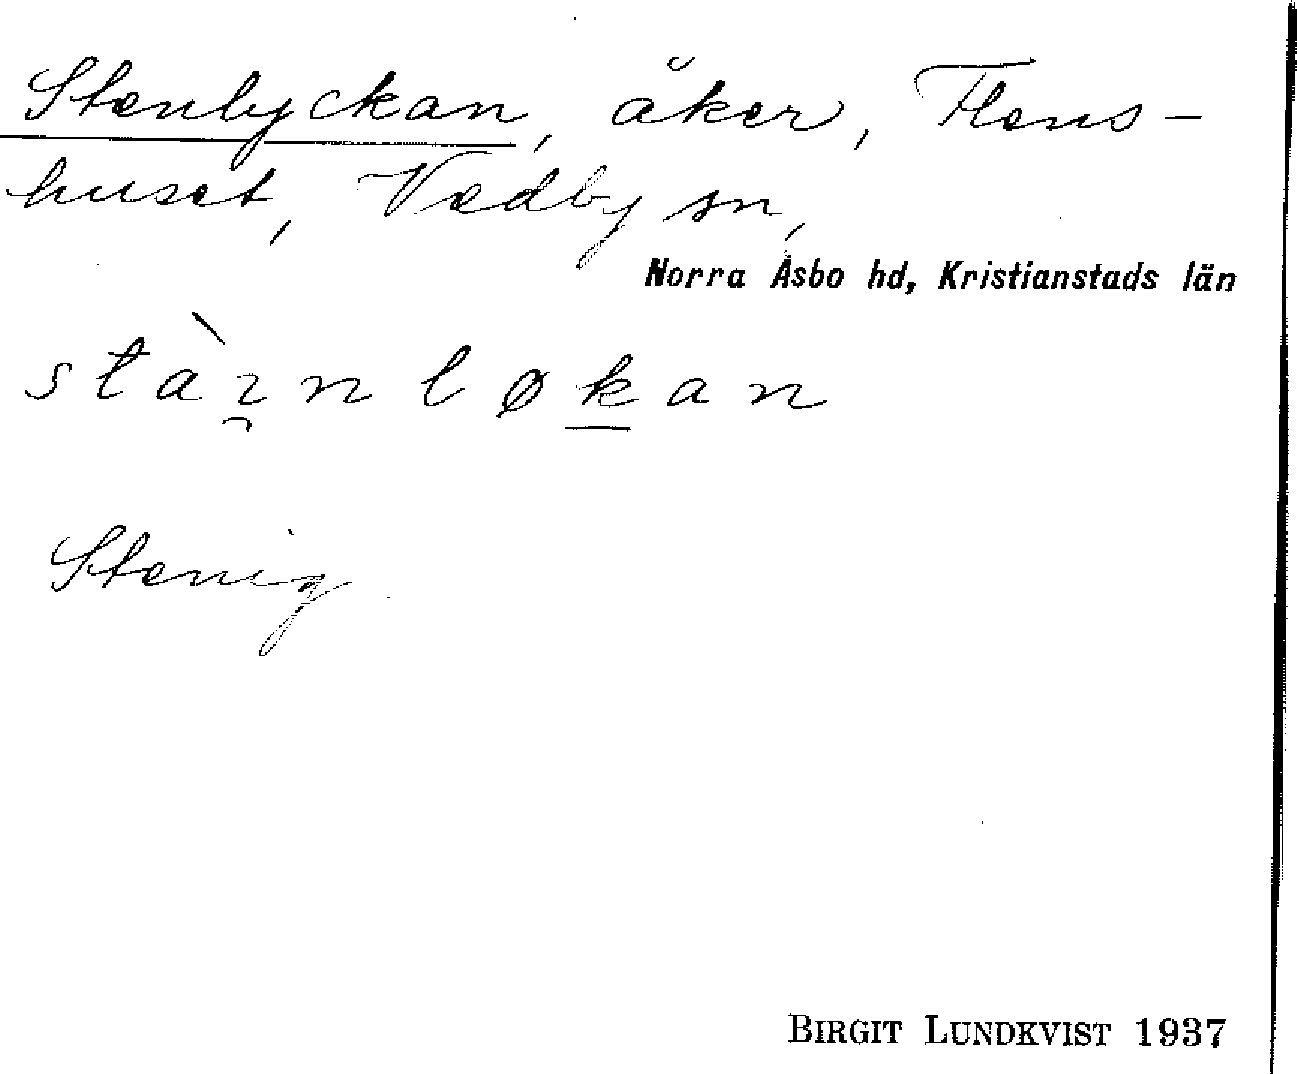 Stenlyckan, åker, Flens-
huset, Vedby sn,
Norra Åsbo hd, Kristianstads län
stàı̯nløḵan
Stenig
BIRGIT LUNDKVIST 1937